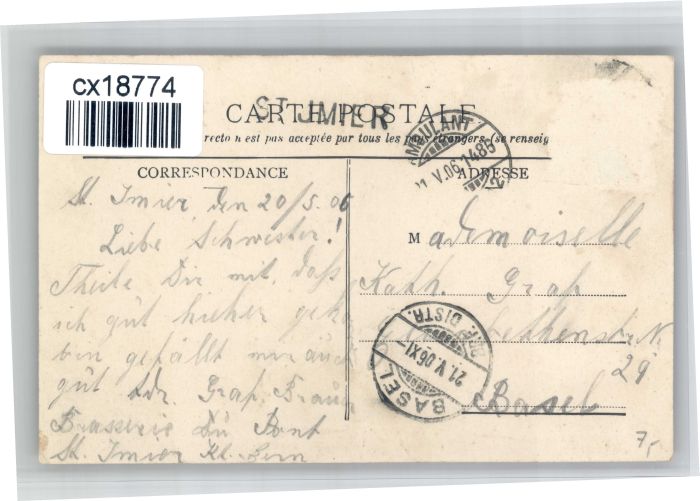 cx18774
CARTE POSTALE
ST IMIER
recto n'est pas acceptée par tous les pays étrangers (se renseig
AMBULANT
21. V. 06. 1485
CORRESPONDANCE
ADRESSE
St. Imier, den 20/5. 06
Liebe Schwester!
Theile Dir mit, daß
ich gut hieher geko
ben gefällt mir auch
gut Adr. Graf Brauer
Brasserie Du Pont
St. Imier Kt. Bern
Mademoiselle
Kath. Graf
N.
29
Basel
BASEL
21. V. 06. XI
BR. DISTR.
7,-